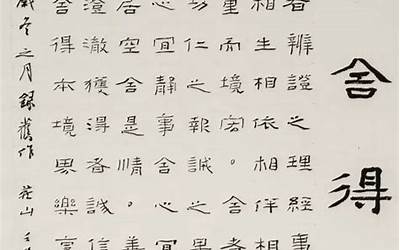 舍得
者辨證之理經事
相生相依相伴相
重而境。舍者
功仁之報誠之果
心宜靜事舍心宜
居空舍是情。善
澄澈獲得者誠信
舍得本境界樂享
歲冬之月錄舊作 莊山